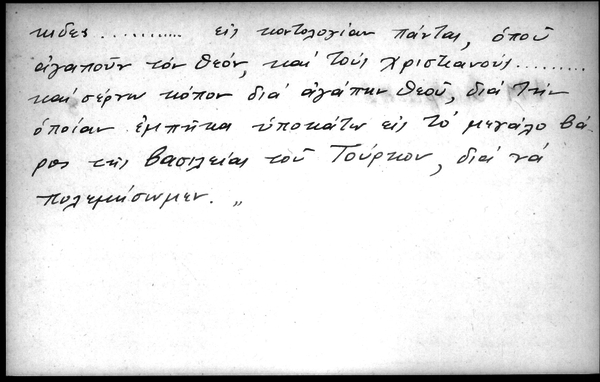 κιδες ........... εἰς κοντολογίαν πάντας, ὁποῦ
ἀγαποῦν τόν Θεόν, καί τούς Χριστιανούς.........
καί σέρνω κόπον διά ἀγάπην Θεοῦ, διά τήν
ὁποίαν ἐμπῆκα ὑποκάτω εἰς τό μεγάλο βά-
ρος τῆς βασιλείας τοῦ Τούρκου, διά νά
πολεμήσωμεν. „